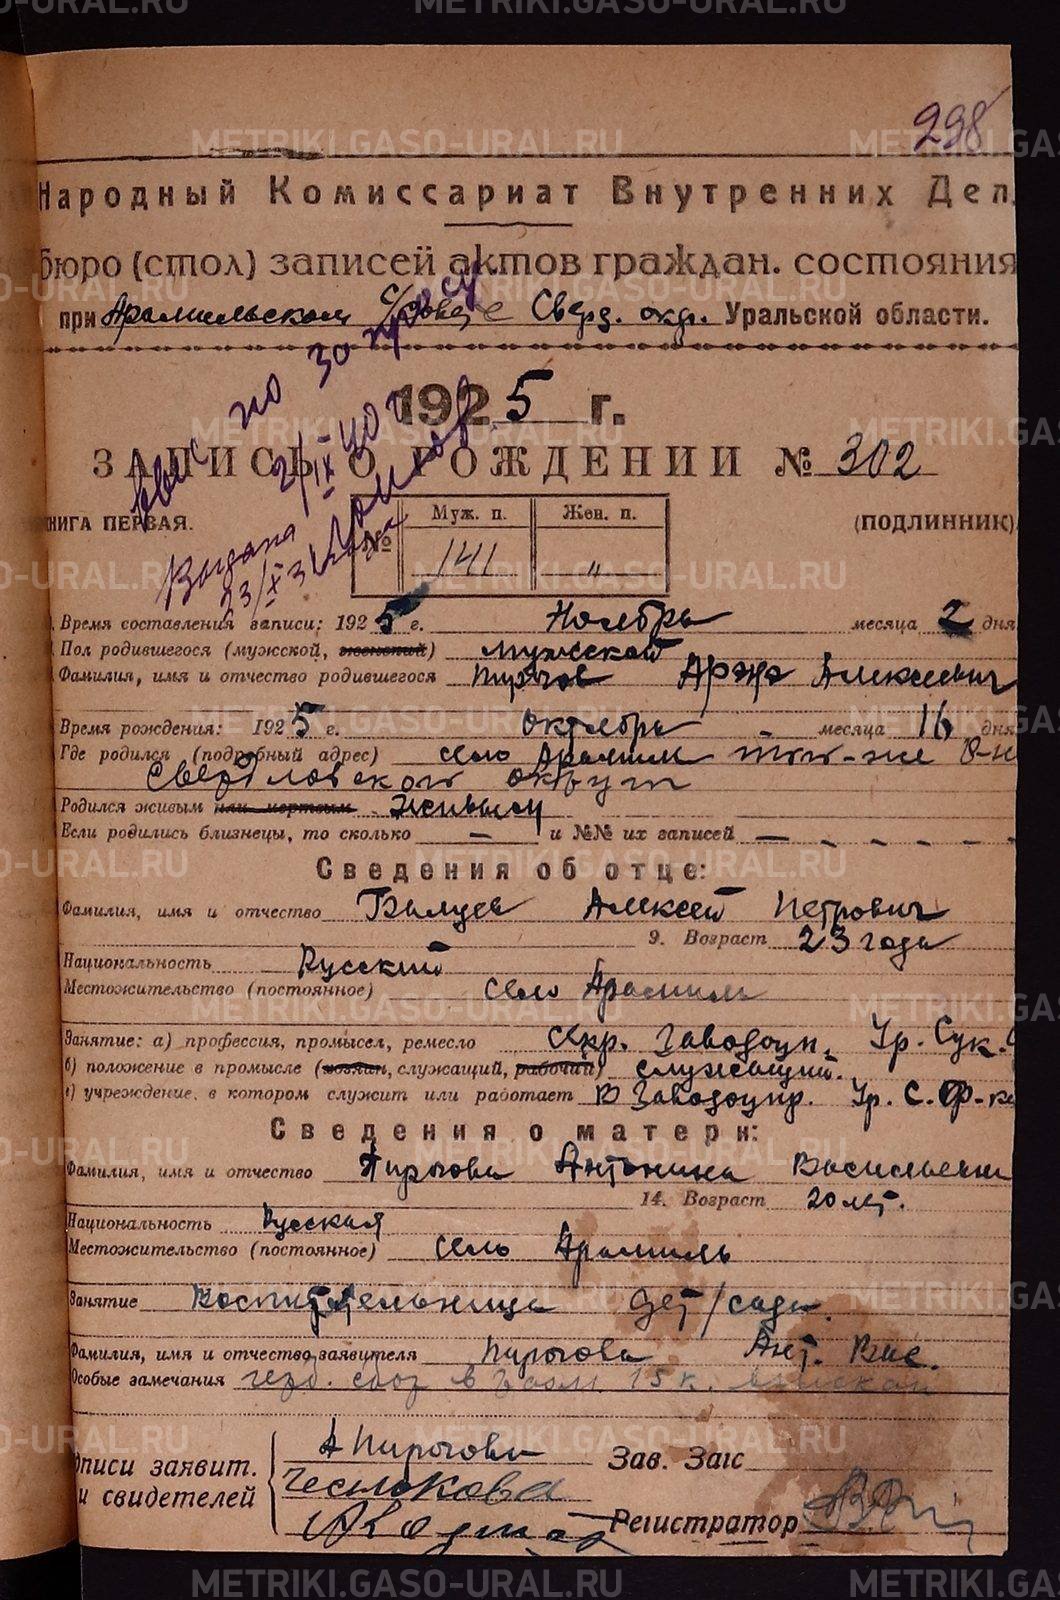 298
Народный Комиссариат Внутренних Дел.
бюро (стол) записей актов граждан. состояния
при Арамильском с/совете Сверд. окр. Уральской области.
по запросу
1925 г.
2/IX 40 г
ЗАПИСЬ О РОЖДЕНИИ № 302
КНИГА ПЕРВАЯ. (ПОДЛИННИК).
№ Муж. п. Жен. п.
141 "
Выдана
23/X 31
Время составления записи: 1925 г. Ноябрь месяца 2 дня
Пол родившегося (мужской, женский) мужской
Фамилия, имя и отчество родившегося Пирогов Алексеевич
Время рождения: 1925 г. Октябрь месяца 16 дня
Где родился (подробный адрес) село Арамиль того-же
Свердловского округа
Родился живым или мертвым живым
Если родились близнецы, то сколько — и №№ их записей — - - - -
Сведения об отце:
Фамилия, имя и отчество Алексей Петрович
9. Возраст 23 года
Национальность Русский
Местожительство (постоянное) село Арамиль
Занятие: а) профессия, промысел, ремесло секр. Заводоупр. Ур. Сук.
б) положение в промысле (хозяин, служащий, рабочий) служащий.
в) учреждение, в котором служит или работает В Заводоупр. Ур. С. Ф-ка
Сведения о матери:
Фамилия, имя и отчество Пирогова Антонина Васильевна
14. Возраст 20 лет.
Национальность Русская
Местожительство (постоянное) село Арамиль
Занятие Воспитательница дет/сада.
Фамилия, имя и отчество заявителя Пирогова Ант. Вас.
Особые замечания герб. сбор в 15 к. взыскан
Подписи заявит. и свидетелей
А Пирогова
Чеснокова
Зав. Загс
Регистратор
METRIKI.GASO-URAL.RU